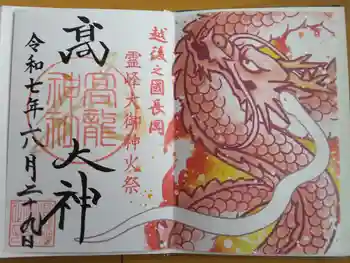 越後之國長岡
霊怪大御神火祭
髙大神
高龍神社
令和七年六月二十九日